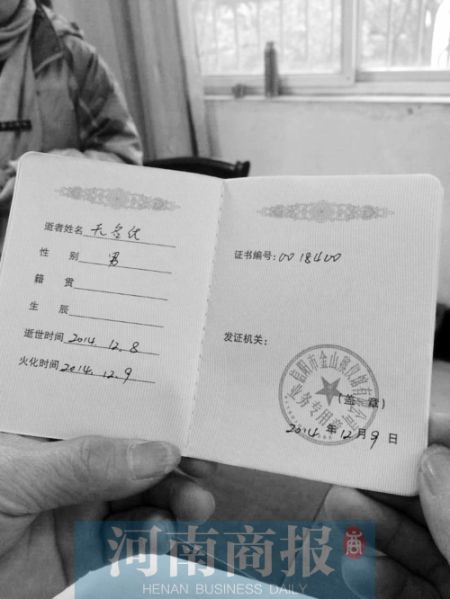 逝者姓名 无名氏
性 别 男
籍 贯
生 辰
逝世时间 2014.12.8
火化时间 2014.12.9
证书编号:0018400
发证机关:
信阳市金山殡仪馆有限公司
业务专用章
(盖 章)
2014年12月9日
河南商报
HENAN BUSINESS DAILY